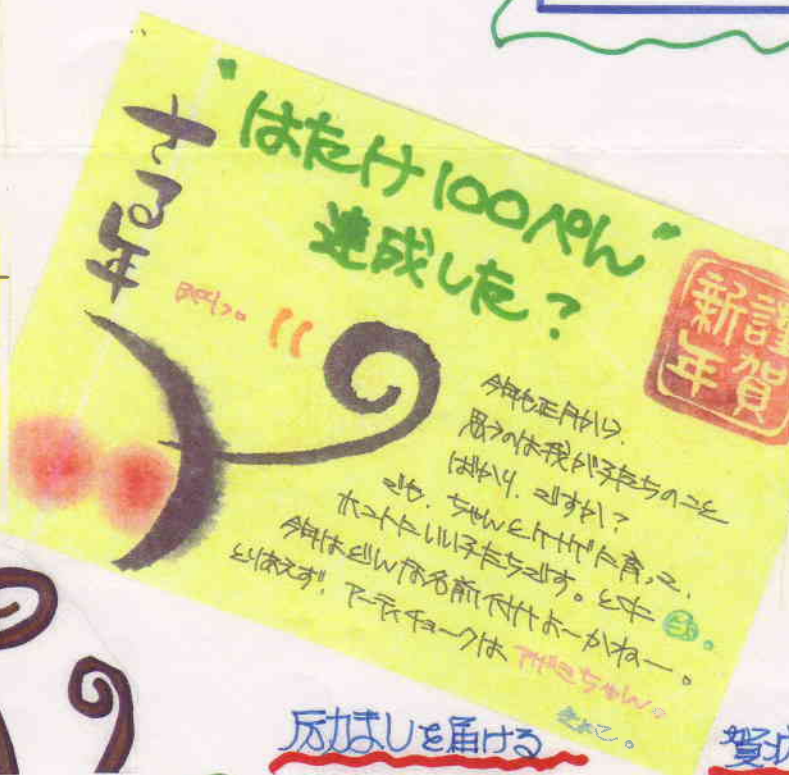 さる年
"はたけ100ぺん"
達成した?
謹賀
新年
今年も正月から、
思うのは我が子たちのこと
ばかり、ですか?
でも、ちゃんとケナゲに育って、
ホントにいい子たちです。とくに
今年はどんな名前付けよーかねー。
とりあえず、アーティチョークは アザミちゃん。
きよこ。
励ましを届ける
賀状